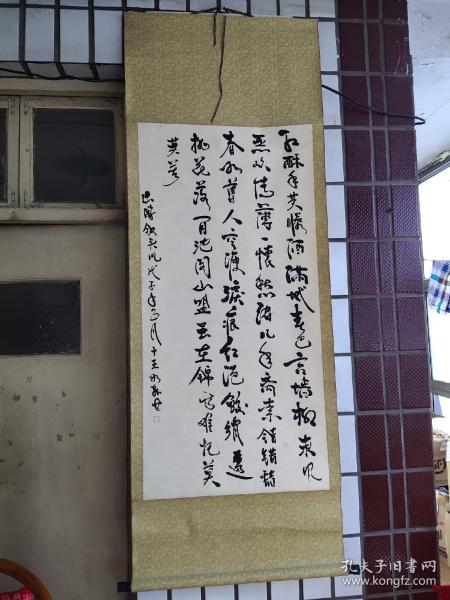 红酥手黄縢酒满城春色宫墙柳东风
恶欢情薄一怀愁绪几年离索错错错
春如旧人空瘦泪痕红浥鲛绡透
桃花落闲池阁山盟虽在锦书难托莫
莫莫
钗头凤 年 月十五
孔夫子旧书网
www.kongfz.com